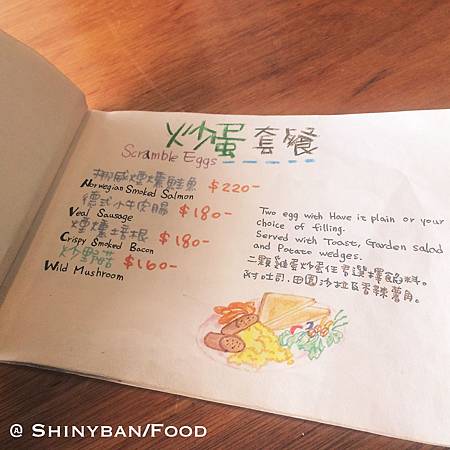 炒蛋套餐
Scramble Eggs
挪威煙燻鮭魚 $220-
Norwegian Smoked Salmon
德式小牛肉腸 $180-
Veal Sausage
煙燻培根 $180-
Crispy Smoked Bacon
炒野菇 $160-
Wild Mushroom
Two egg with Have it plain or your
choice of filling.
Served with Toast, Garden salad
and Potato wedges.
二顆雞蛋炒蛋任君選擇餡料。
附吐司.田園沙拉及香辣薯角。
@ Shinyban/Food